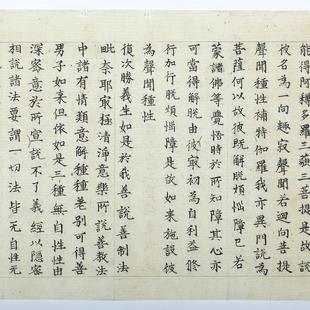 能得阿耨多羅三藐三菩提是故說
彼名為一向趣寂聲聞若迴向菩提
聲聞種性補特伽羅我亦異門說為
菩薩何以故彼既解脫煩惱障已若
蒙諸佛等覺悟時於所知障其心亦
可當得解脫由彼寂初為自利益修
行加行脫煩惱障是故如来施設彼
為聲聞種性
復次勝義生如是於我善說善制法
毗奈耶寂極清淨意樂所說善教法
中諸有情類意解種種差別可得善
男子如来但依如是三種無自性性由
深密意於所宣說不了義經以隱密
相說諸法要謂一切法皆無自性无